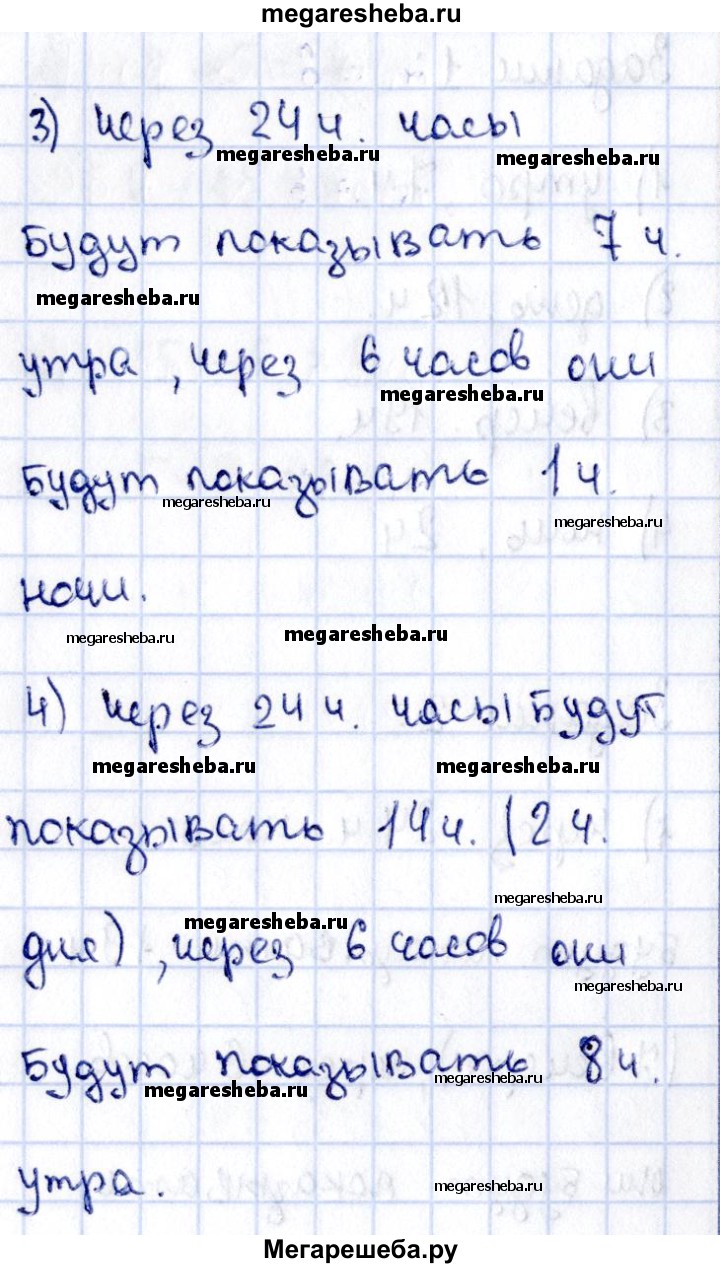 megaresheba.ru
3) через 24 ч. часы
megaresheba.ru
megaresheba.ru
Будут показывать 7 ч.
megaresheba.ru
утра, через 6 часов они
megaresheba.ru
Будут показывать 1 ч.
megaresheba.ru
megaresheba.ru
ночи.
megaresheba.ru
megaresheba.ru
4) через 24 ч. часы Будут
megaresheba.ru
megaresheba.ru
показывать 14 ч. (2 ч.
megaresheba.ru
megaresheba.ru
дня), через 6 часов они
megaresheba.ru
Будут показывать 8 ч.
megaresheba.ru
megaresheba.ru
утра.
megaresheba.ru
Мегарешеба.ру